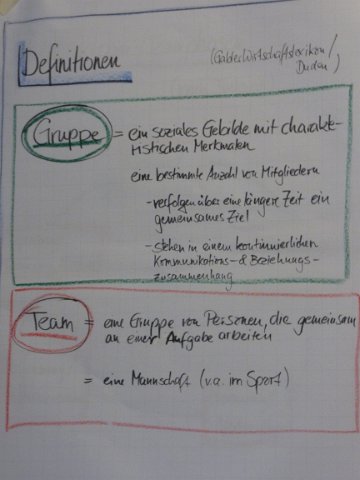 Definitionen
(Gabler Wirtschaftslexikon/
Duden)
Gruppe = ein soziales Gebilde mit charakte-
ristischen Merkmalen
eine bestimmte Anzahl von Mitgliedern
- verfolgen über eine längere Zeit ein
gemeinsames Ziel
- stehen in einem kontinuierlichen
Kommunikations- & Beziehungs-
zusammenhang
Team = eine Gruppe von Personen, die gemeinsam
an einer Aufgabe arbeiten
= eine Mannschaft (v.a. im Sport)